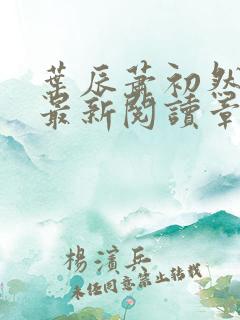 葉辰蕭初然
最新閱讀章
楊濱兵
未經同意禁止轉載